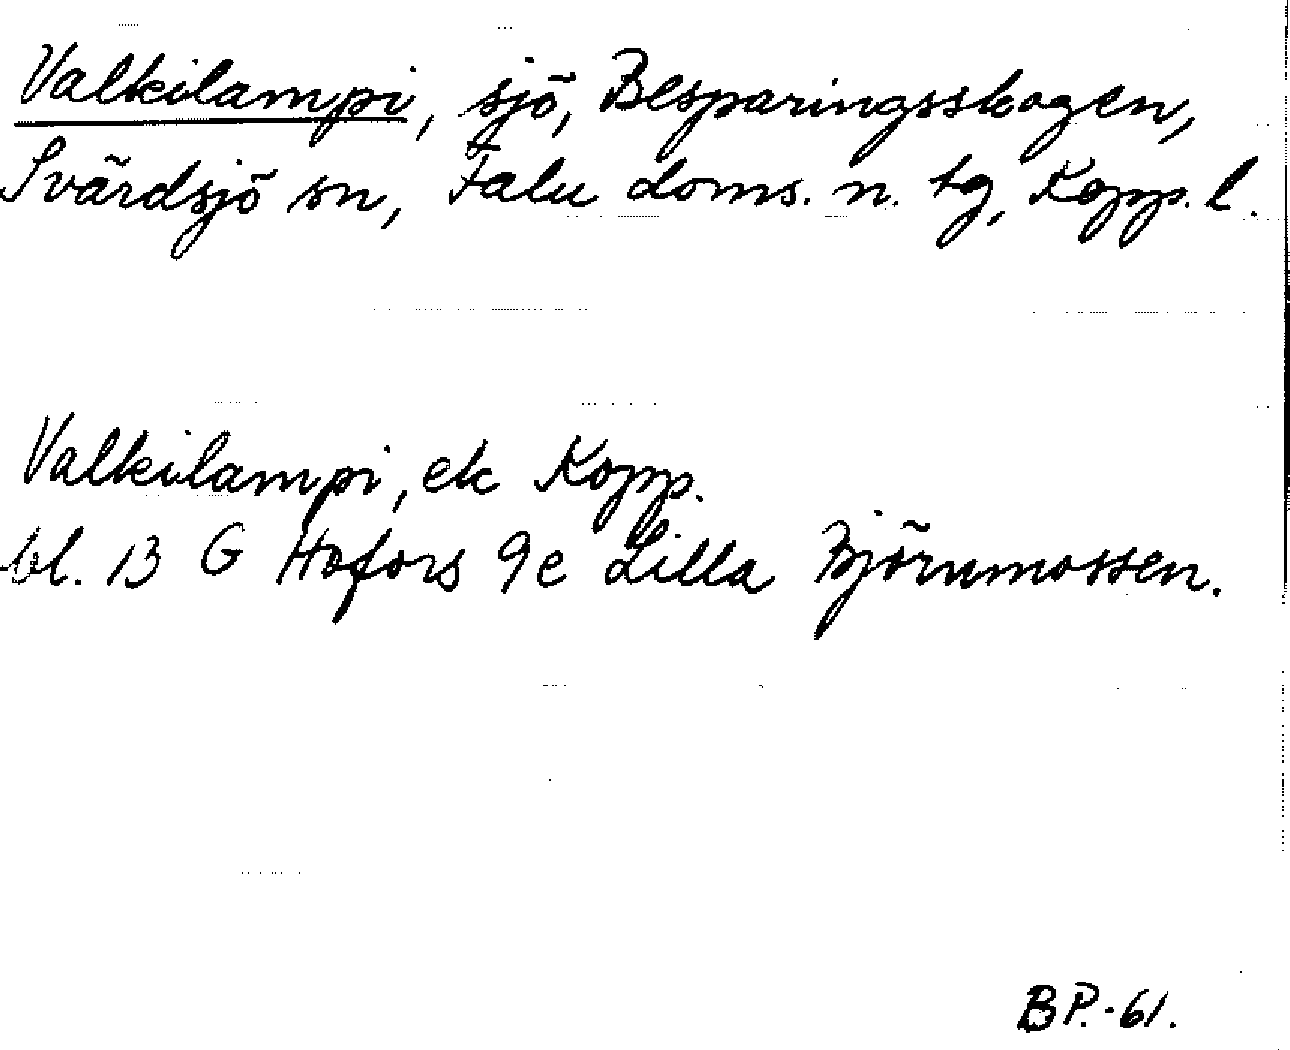 Valkilampi, sjö, Besparingsskogen,
Svärdsjö sn, Falu doms. n. tg, Kopp. l.
Valkilampi, ek Kopp.
bl. 13 G Hofors 9e Lilla Björnmossen.
BP.-61.